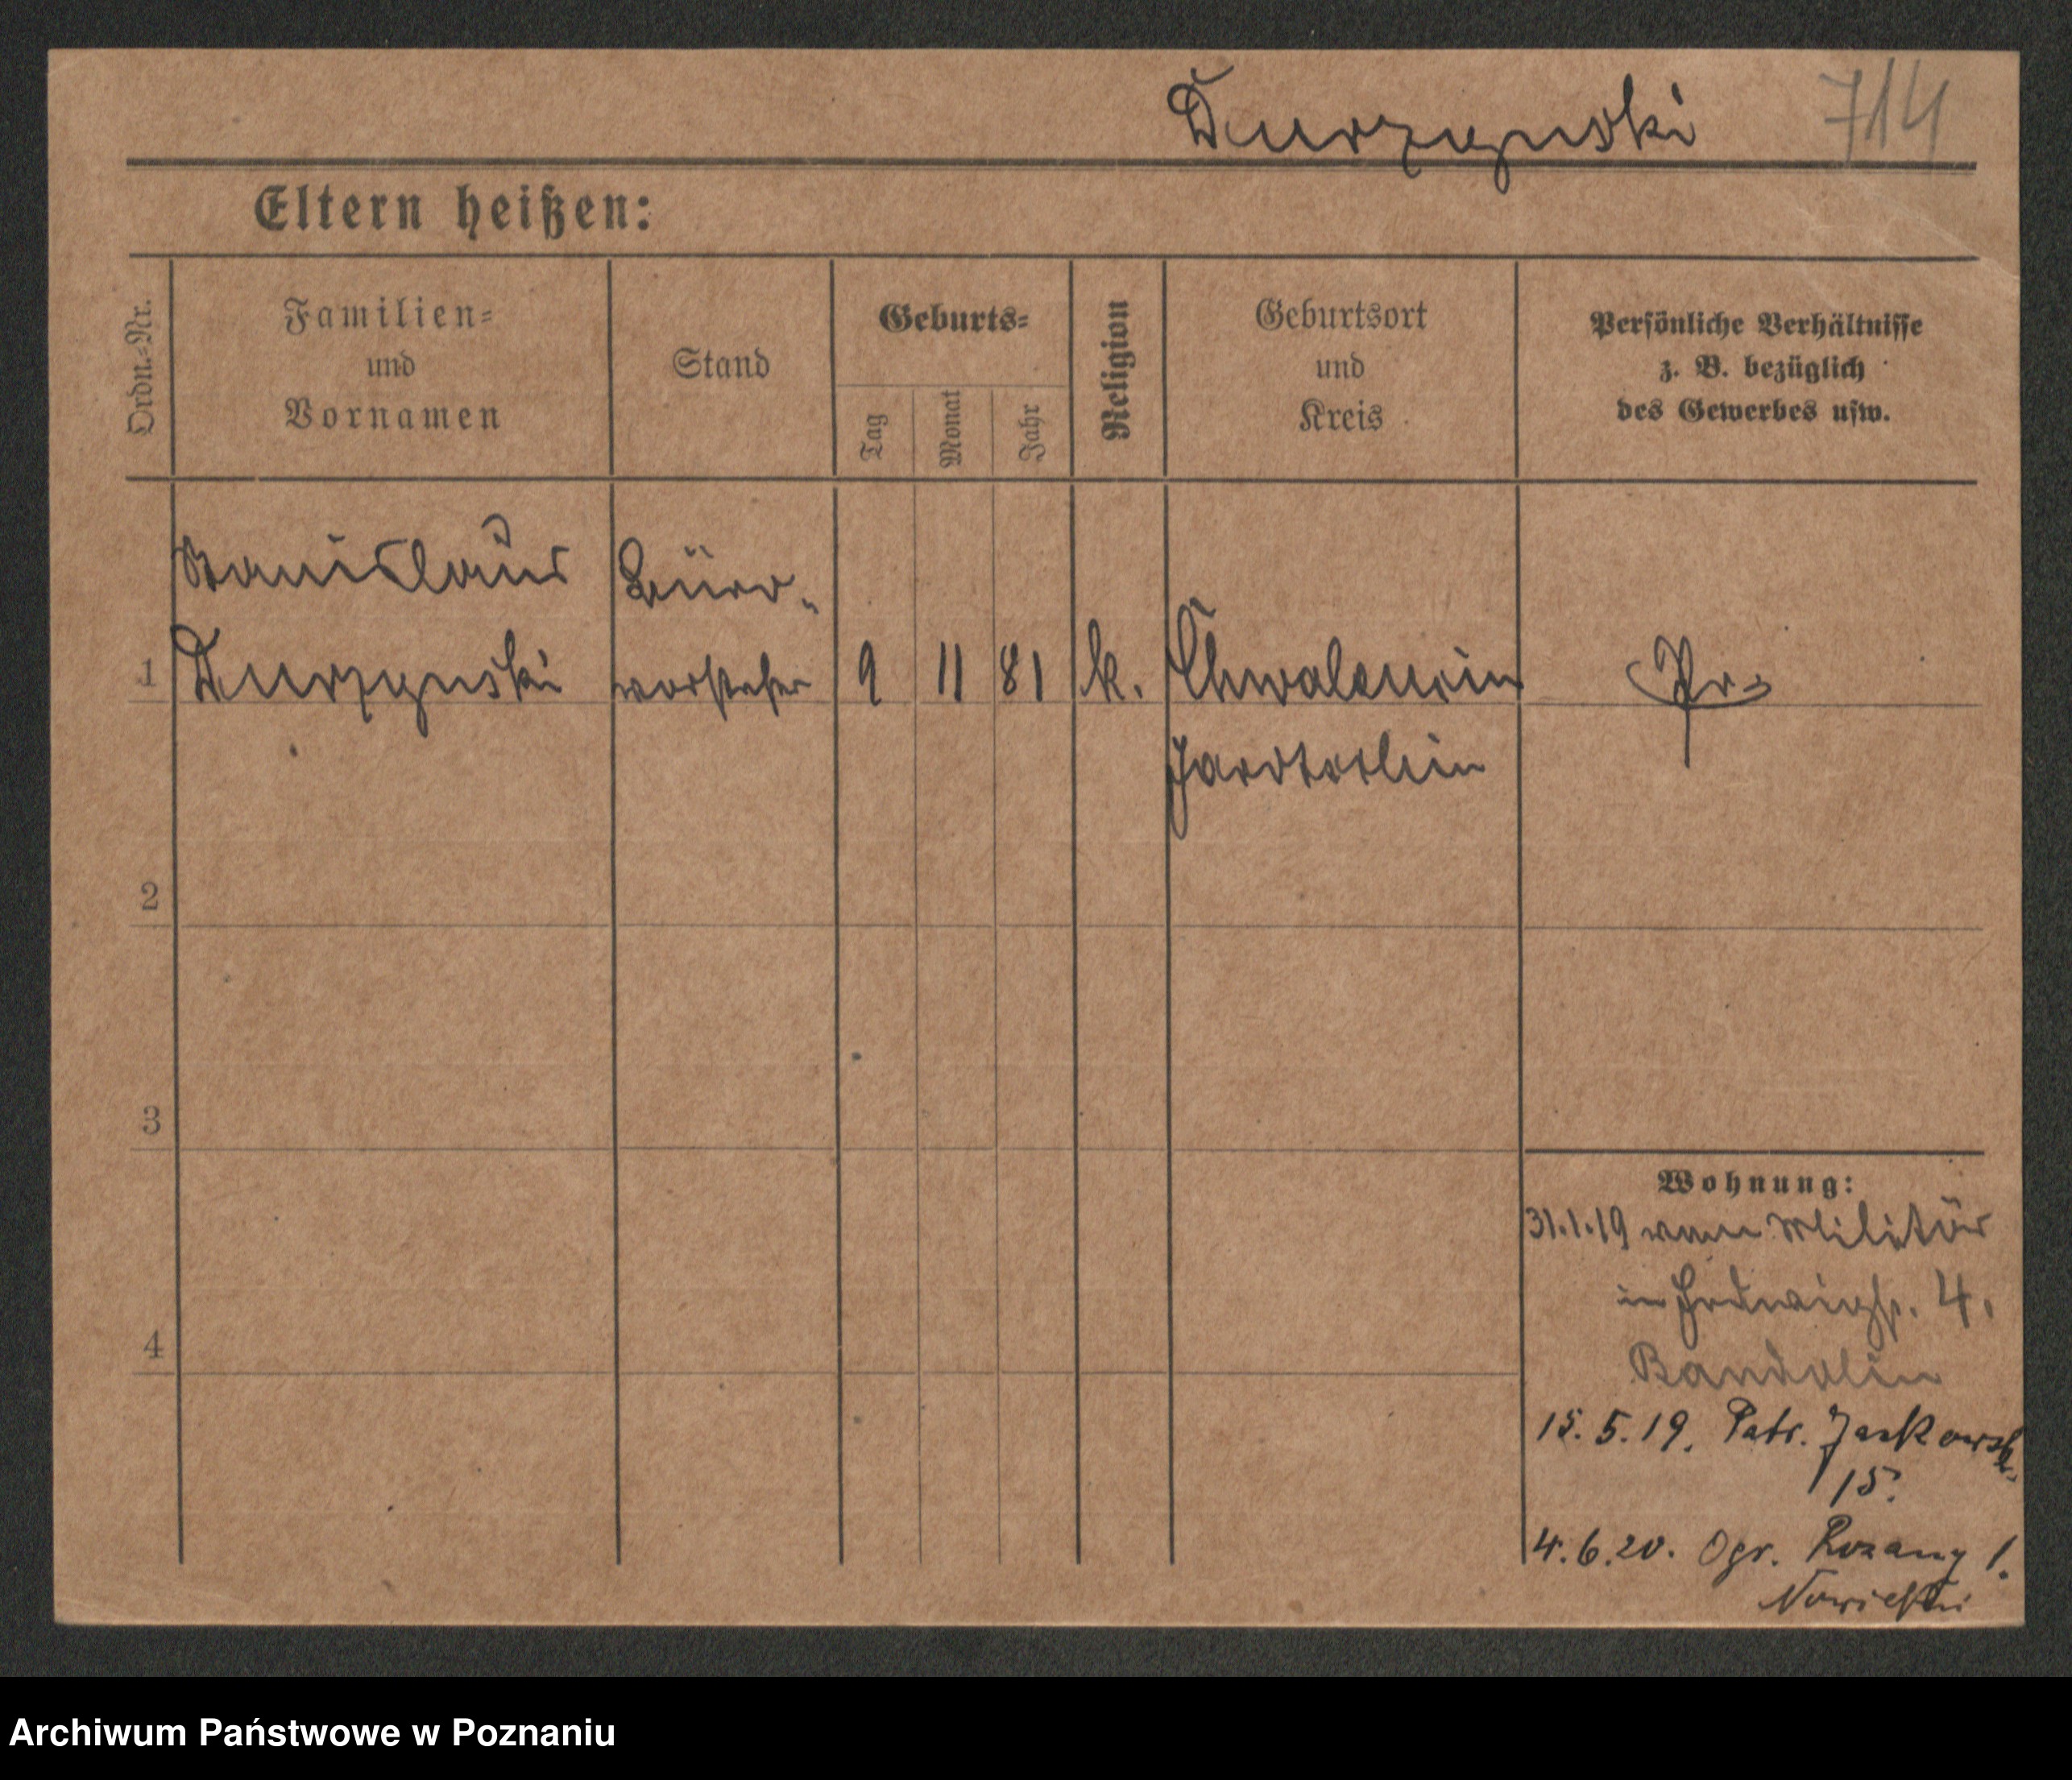 Durzynski 714
Eltern heißen:
Ordn.=Nr.
Familien=
und
Vornamen
Stand
Geburts=
Tag
Monat
Jahr
Religion
Geburtsort
und
Kreis
Persönliche Verhältnisse
z. B. bezüglich
des Gewerbes usw.
Stanislaus Büro-
1 Durzynski vorsteher 9 11 81 k. Pr.
Jarotschin
2
3
4
Wohnung:
31.1.19 vom Militär
in 4.
Bandolin
15.5.19. Patr. Jackowsk.
15.
4.6.20. Ogr. 1.
Nowicki
Archiwum Państwowe w Poznaniu